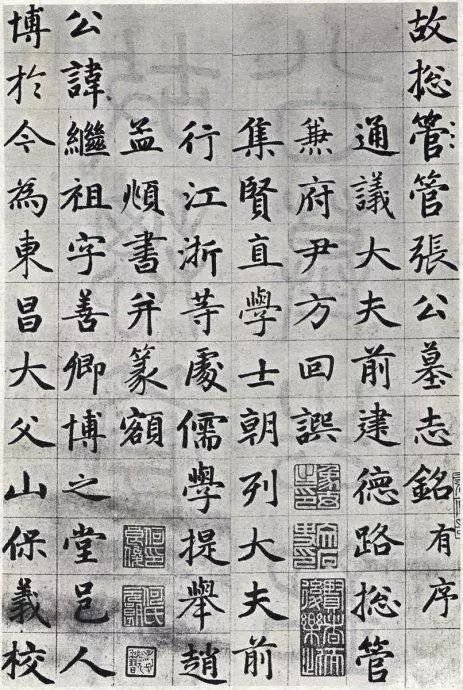 故捴管管張公墓志銘有序
通議大夫前建德路捴管
兼府尹方回譔
集賢直學士朝列大夫前
行江浙等處儒學提舉趙
孟頫書并篆額
公諱繼祖字善卿博之堂邑人
博於今為東昌大父山保義校